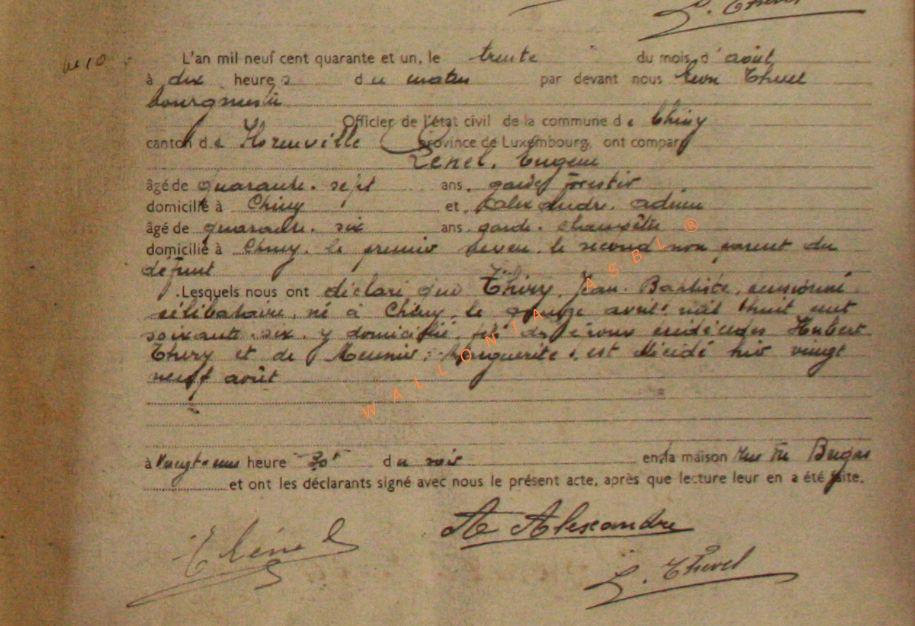 L. Thevel
N° 10
L'an mil neuf cent quarante et un, le trente du mois d'août
à dix heures du matin par devant nous Léon Thevel
bourgmestre
Officier de l'état civil de la commune de Chiny
canton de Florenville province de Luxembourg, ont comparu
Lenel, Eugène
âgé de quarante-sept ans, garde forestier
domicilié à Chiny et Alexandre, Adrien
âgé de quarante-six ans, garde-champêtre
domicilié à Chiny, le premier neveu, le second non parent du
défunt
Lesquels nous ont déclaré que Thiry, Jean-Baptiste, pensionné
célibataire, né à Chiny, le avril mil huit cent
soixante-six, y domicilié, fils des époux Hubert
Thiry et de Meunier, Marguerite, est décédé hier vingt
neuf août
à vingt-une heure 30' du soir en la maison rue
et ont les déclarants signé avec nous le présent acte, après que lecture leur en a été faite.
WALLONIA ASBL ®
A Alexandre
L. Thevel